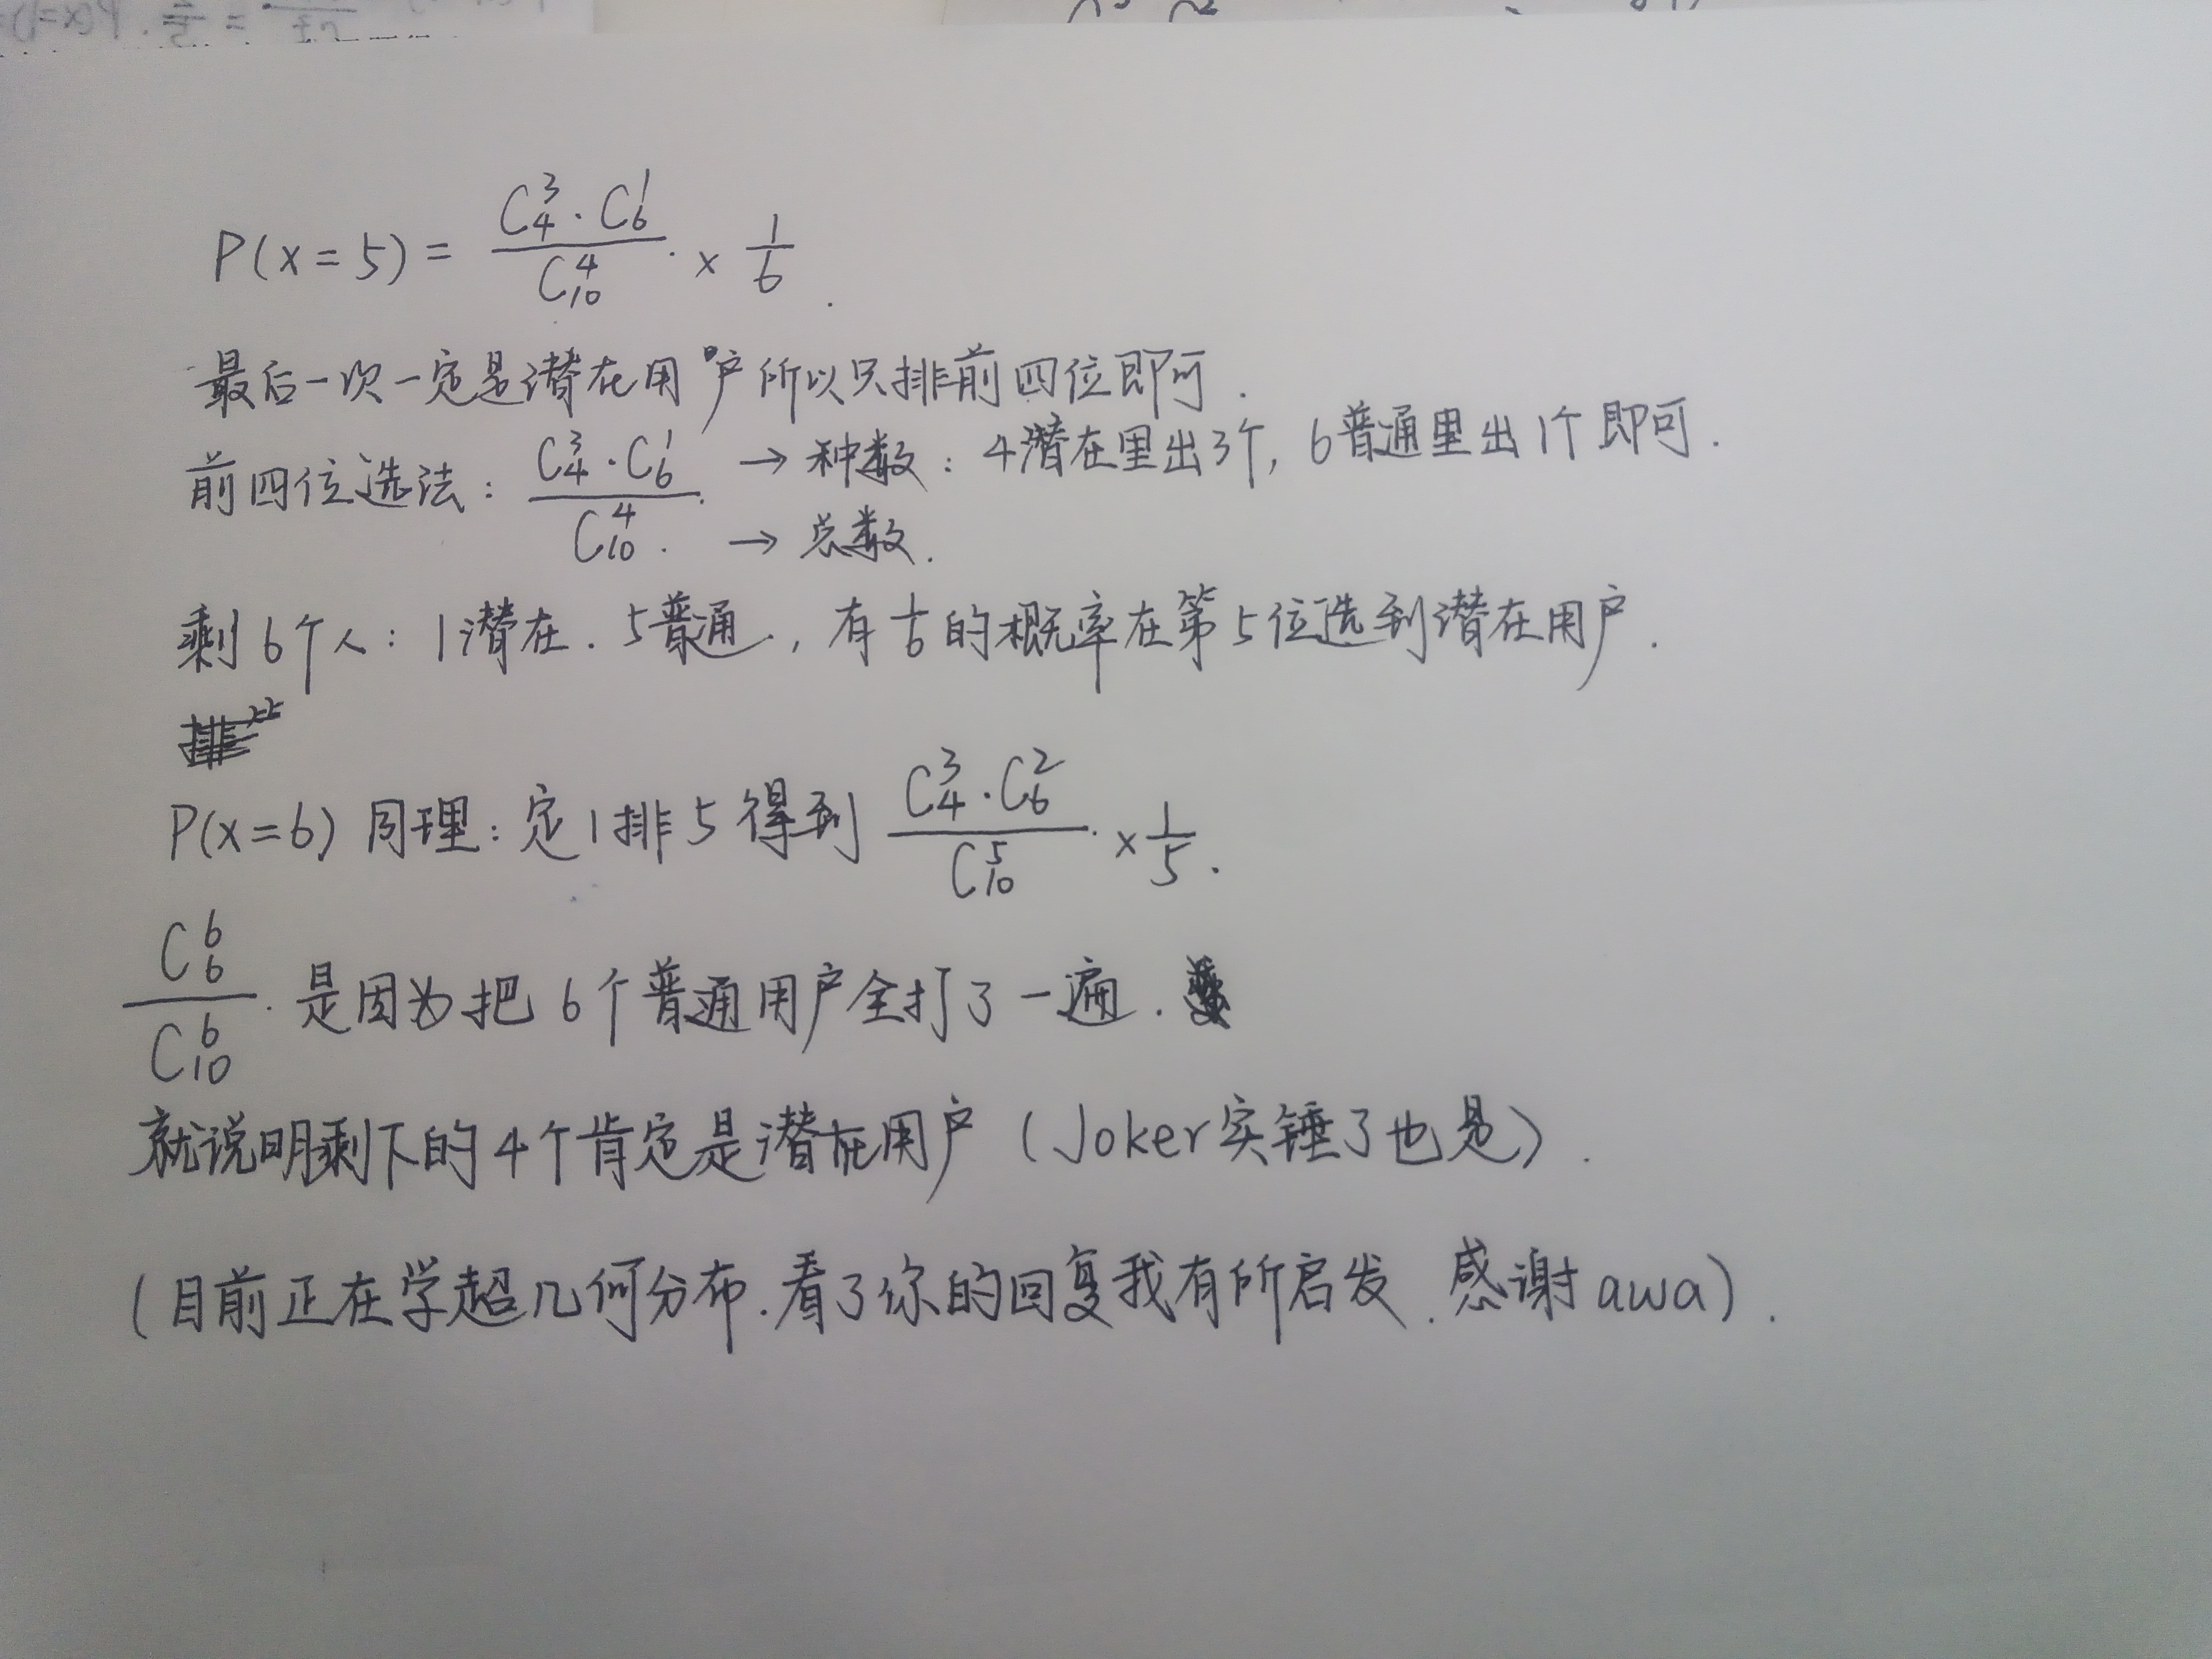 P(x=5) = C₄³·C₆¹ / C₁₀⁴ × 1/6.
最后一次一定是潜在用户所以只排前四位即可.
前四位选法: C₄³·C₆¹ / C₁₀⁴ → 种数: 4潜在里出3个, 6普通里出1个即可.
→ 总数.
剩6个人: 1潜在. 5普通., 有1/6的概率在第5位选到潜在用户.
P(x=6) 同理: 定1排5得到 C₄³·C₆² / C₁₀⁵ × 1/5.
C₆⁶ / C₁₀⁶ 是因为把6个普通用户全打了一遍.
就说明剩下的4个肯定是潜在用户 (Joker实锤了也是).
(目前正在学超几何分布.看了你的回复我有所启发.感谢awa).